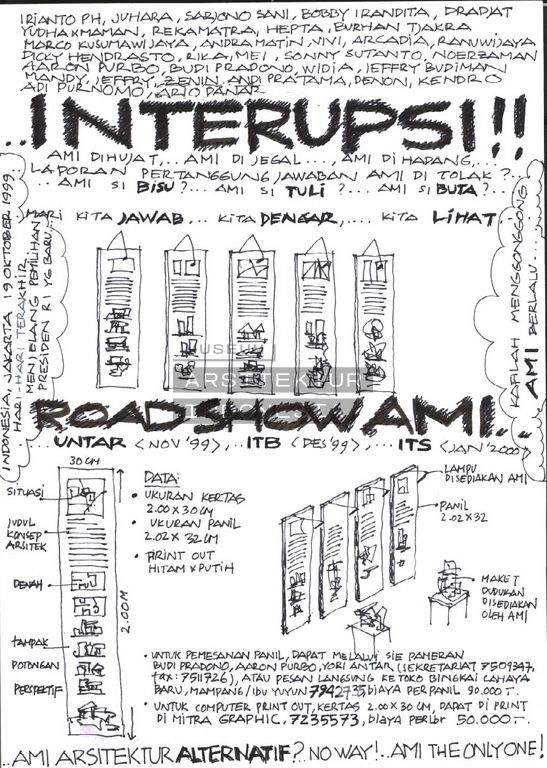 IRIANTO PH, JUHARA, SARJONO SANI, BOBBY IRANDITA, DRADJAT
YUDHAXMAMAN, REKAMATRA, HEPTA, BURHAN TJAKRA
MARCO KUSUMAWIJAYA, ANDRA MATIN, VIVI, ARCADIA, RANUWIJAYA
DICKY HENDRASTO, RIKA, MEI, SONNY SUTANTO, NOERZAMAN
AARON PURBO, BUDI PRADONO, WIDIA, JEFFRY BUDIMAN
MANDY, JEFFRY, ZENIN, ANDI PRATAMA, DENON, KENDRO
ADI PURNOMO, ARIO DANAR
..INTERUPSI!!
AMI DIHUJAT,... AMI DI JEGAL..., AMI DI HADANG,...
LAPORAN PERTANGGUNG JAWABAN AMI DI TOLAK?...
...AMI SI BISU?... AMI SI TULI?... AMI SI BUTA?...
MARI KITA JAWAB,.. KITA DENGAR,... KITA LIHAT
INDONESIA, JAKARTA 19 OKTOBER 1999.
HARI-HARI TERAKHIR
MENJELANG PEMILIHAN
PRESIDEN RI YG BARU...
KAFILAH MENGGONGGONG
AMI BERLALU...
MUSEUM
ARSITEKTUR
ROADSHOW AMI..
...UNTAR <NOV '99>,..ITB <DES '99>,...ITS <JAN '2000>
30 CM
SITUASI
JUDUL
KONSEP
ARSITEK
DENAH
TAMPAK
POTONGAN
PERSPEKTIF
2.00M
DATA:
• UKURAN KERTAS
2.00 X 30 CM
• UKURAN PANIL
2.02 X 32 CM
• PRINT OUT
HITAM X PUTIH
LAMPU
DISEDIAKAN AMI
PANIL
2.02 X 32
MAKET
DUDUKAN
DISEDIAKAN
OLEH AMI
• UNTUK PEMESANAN PANIL, DAPAT MELALUI SIE PAMERAN
BUDI PRADONO, AARON PURBO, YORI ANTAR (SEKRETARIAT 7509347,
fax: 7511726), ATAU PESAN LANGSUNG KE TOKO BINGKAI CAHAYA
BARU, MAMPANG/ibu YUYUN 7942735 biaya PER PANIL 90.000 -.
• UNTUK COMPUTER PRINT OUT, KERTAS 2.00 X 30 CM, DAPAT DI PRINT
DI MITRA GRAPHIC, 7235573, biaya perlbr 50.000 -.
..AMI ARSITEKTUR ALTERNATIF? NO WAY!..AMI THE ONLY ONE!